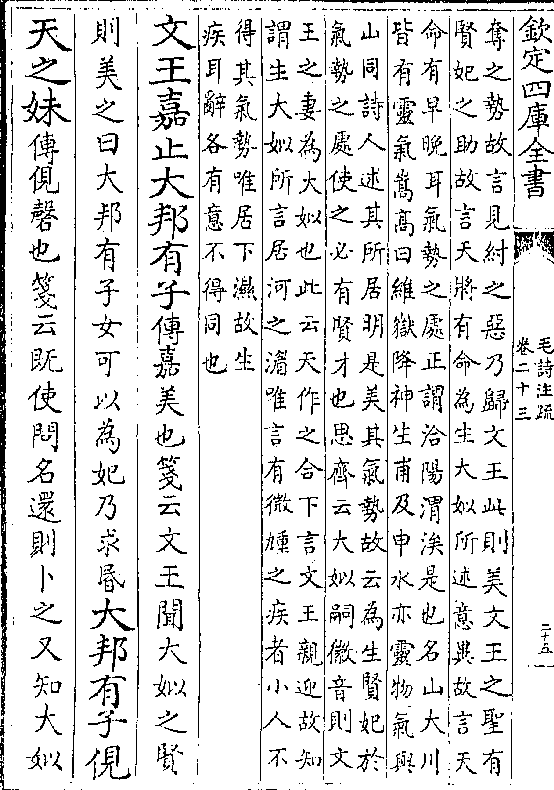 欽定四庫全書
毛詩注疏
卷二十三
二十五
奪之勢故言見紂之惡乃歸文王此則美文王之聖有
賢妃之助故言天將有命為生大姒所述意異故言天
命有早晚耳氣勢之處正謂洽陽渭涘是也名山大川
皆有靈氣嵩高曰維嶽降神生甫及申水亦靈物氣與
山同詩人述其所居明是美其氣勢故云為生賢妃於
氣勢之處使之必有賢才也思齊云大姒嗣徽音則文
王之妻為大姒也此云天作之合下言文王親迎故知
謂生大姒所言居河之湄唯言有微尰之疾者小人不
得其氣勢唯居下濕故生
疾耳辭各有意不得同也
文王嘉止大邦有子傳嘉美也箋云文王聞大姒之賢
則美之曰大邦有子女可以為妃乃求昏大邦有子俔
天之妹傳俔磬也箋云既使問名還則卜之又知大姒